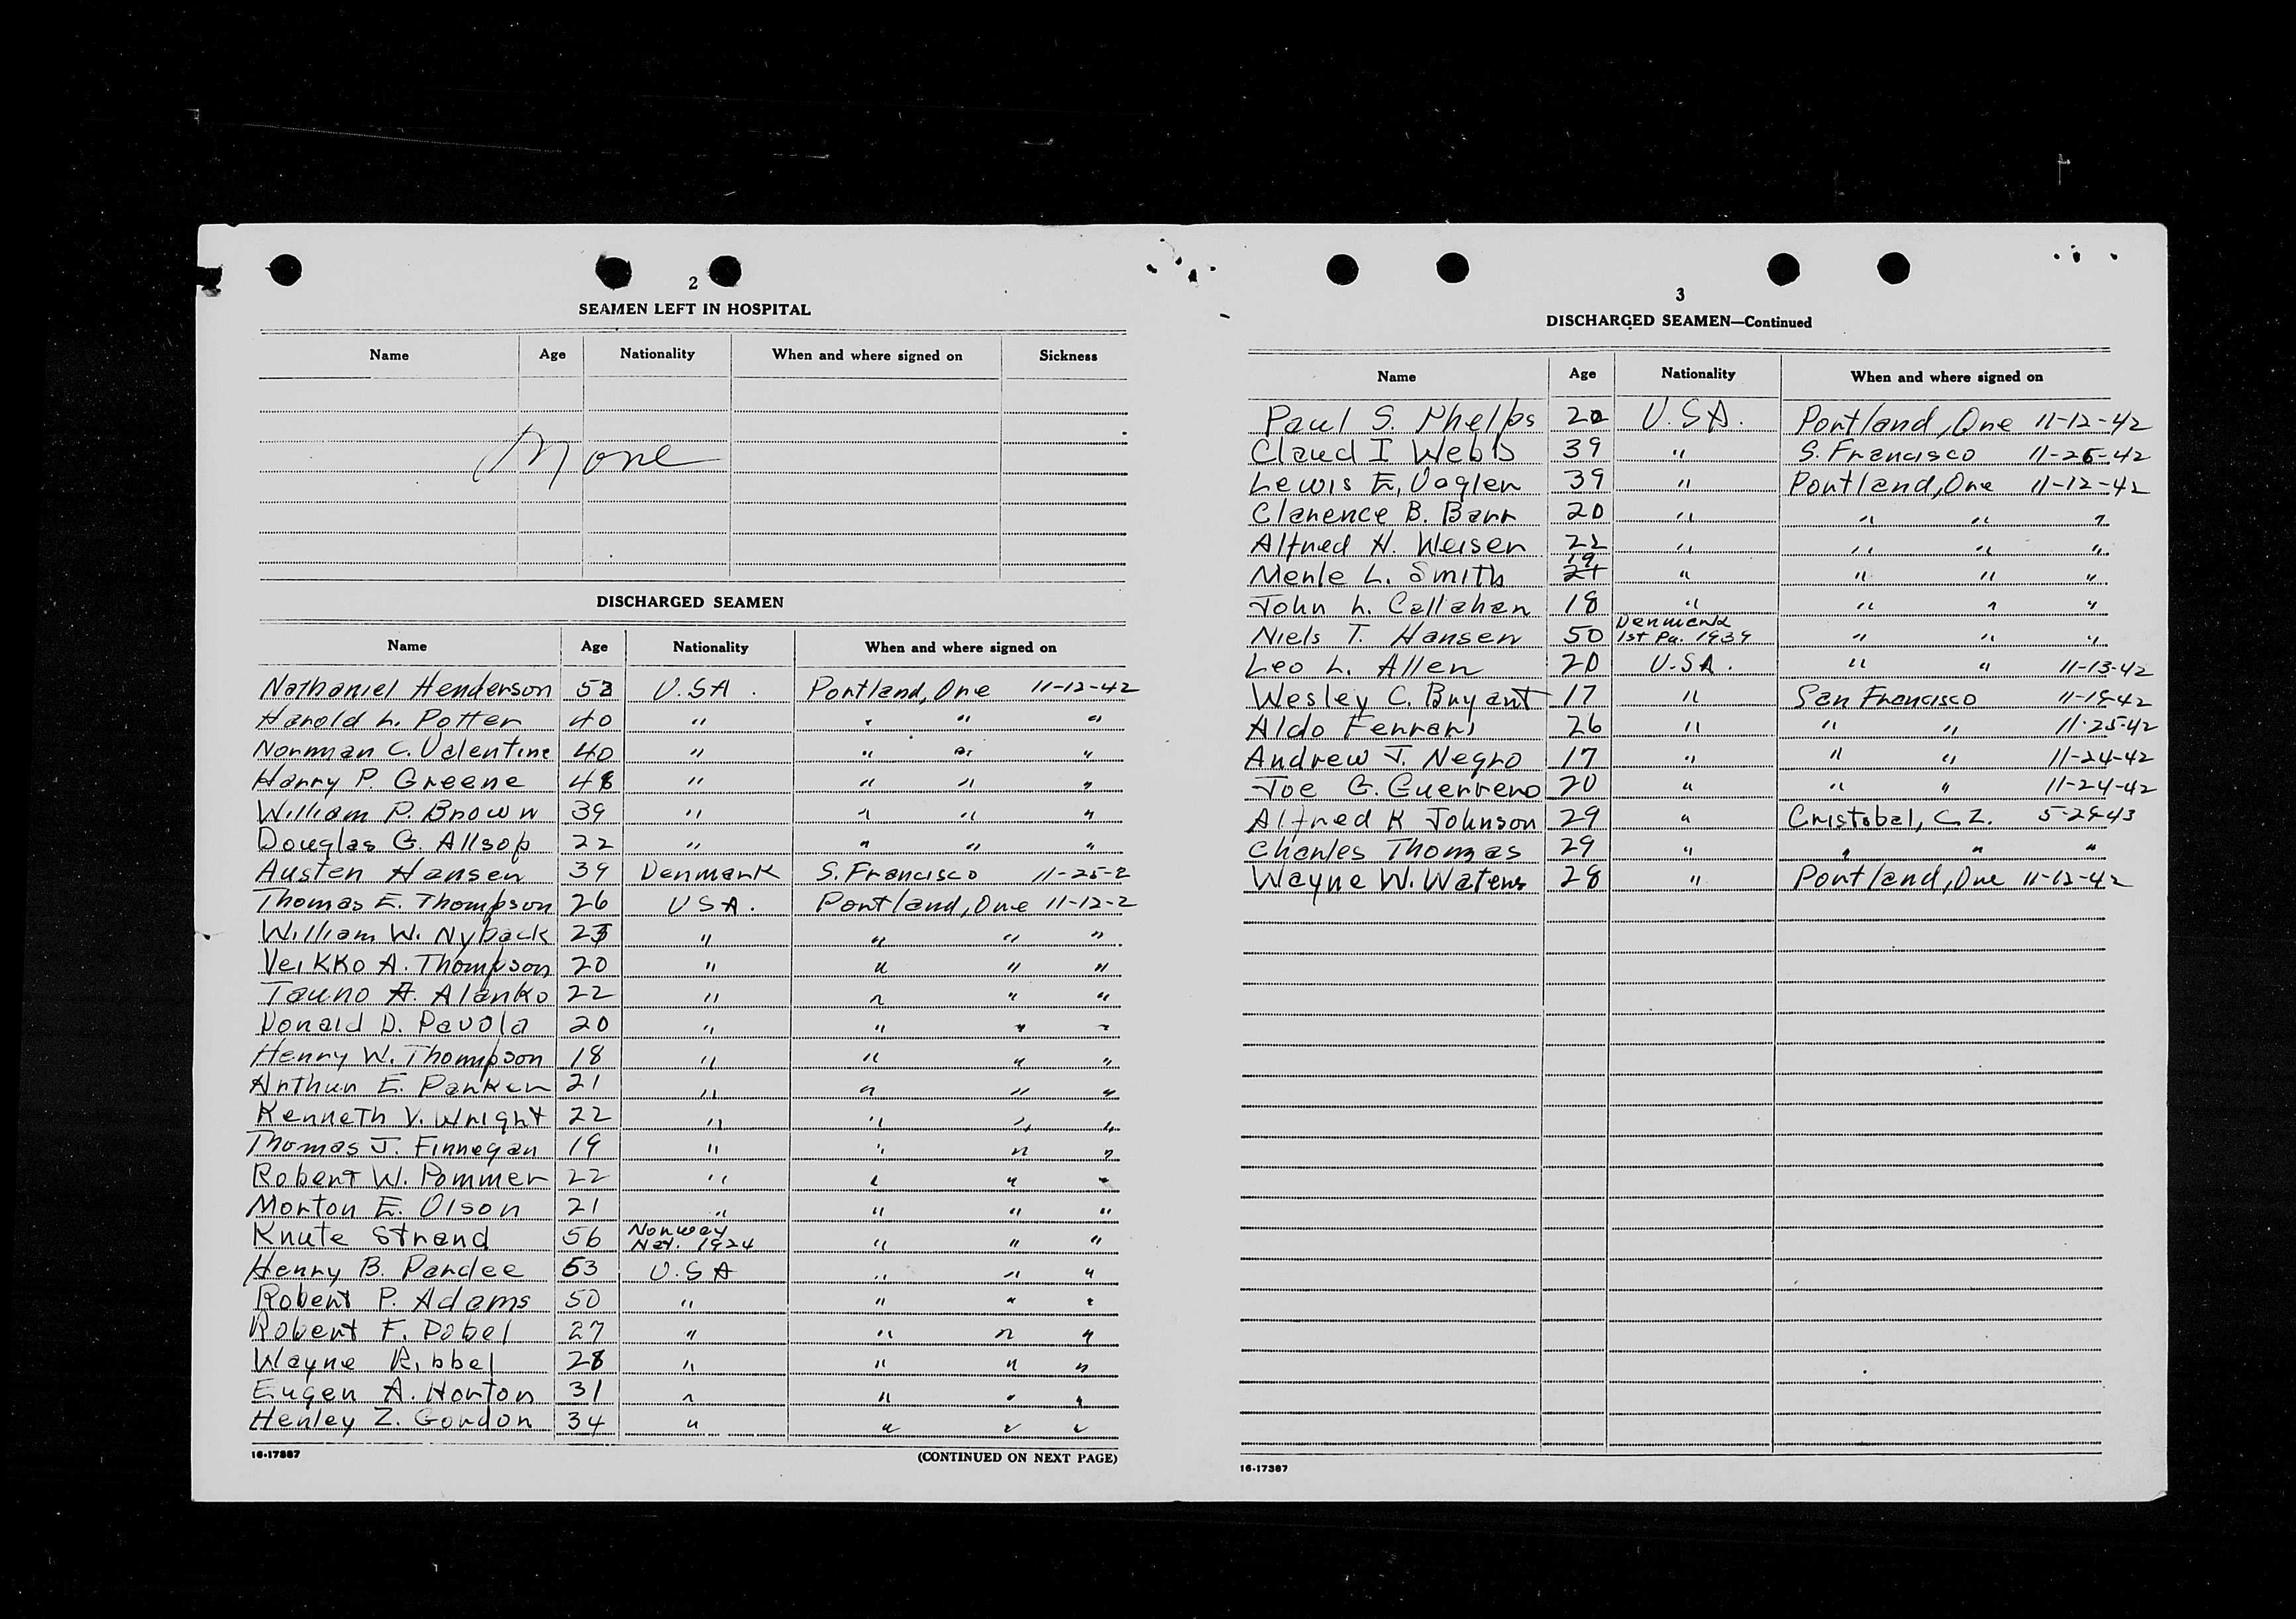 2
SEAMEN LEFT IN HOSPITAL
Name Age Nationality When and where signed on Sickness
None
DISCHARGED SEAMEN
Name Age Nationality When and where signed on
Nathaniel Henderson 53 U.SA. Portland, Ore 11-12-42
Harold L. Potter 40 " " " "
Norman C. Valentine 40 " " " "
Harry P. Greene 48 " " " "
William P. Brown 39 " " " "
Douglas G. Allsop 22 " " " "
Austen Hansen 39 Denmark S. Francisco 11-25-2
Thomas E. Thompson 26 USA. Portland, Ore 11-12-2
William W. Nyback 23 " " " "
Veikko A. Thompson 20 " " " "
Tauno A. Alanko 22 " " " "
Donald D. Pavola 20 " " " "
Henry W. Thompson 18 " " " "
Arthur E. Parker 21 " " " "
Kenneth V. Wright 22 " " " "
Thomas J. Finnegan 19 " " " "
Robert W. Pommer 22 " " " "
Morton E. Olson 21 " " " "
Knute Strand 56 Norway Nat. 1924 " " "
Henry B. Pardee 53 U.S.A " " "
Robert P. Adams 50 " " " "
Robert F. Dobel 27 " " " "
Wayne Ribbel 28 " " " "
Eugen A. Horton 31 " " " "
Henley Z. Gordon 34 " " " "
16-17387 (CONTINUED ON NEXT PAGE)
3
DISCHARGED SEAMEN—Continued
Name Age Nationality When and where signed on
Paul S. Phelps 22 U.SA. Portland, Ore 11-12-42
Claud I Webb 39 " S. Francisco 11-25-42
Lewis E. Vogler 39 " Portland, Ore 11-12-42
Clarence B. Barr 20 " " " "
Alfred H. Weiser 22 " " " "
Merle L. Smith 19 21 " " " "
John L. Callahan 18 " " " "
Niels T. Hansen 50 Denmark 1st Pa. 1939 " " "
Leo L. Allen 20 U.SA. " " 11-13-42
Wesley C. Bryant 17 " San Francisco 11-19-42
Aldo Ferrari 26 " " " 11-25-42
Andrew J. Negro 17 " " " 11-24-42
Joe G. Guerrero 20 " " " 11-24-42
Alfred K Johnson 29 " Cristobal, C.Z. 5-29-43
Charles Thomas 29 " " " "
Wayne W. Waters 28 " Portland, Ore 11-12-42
16-17387